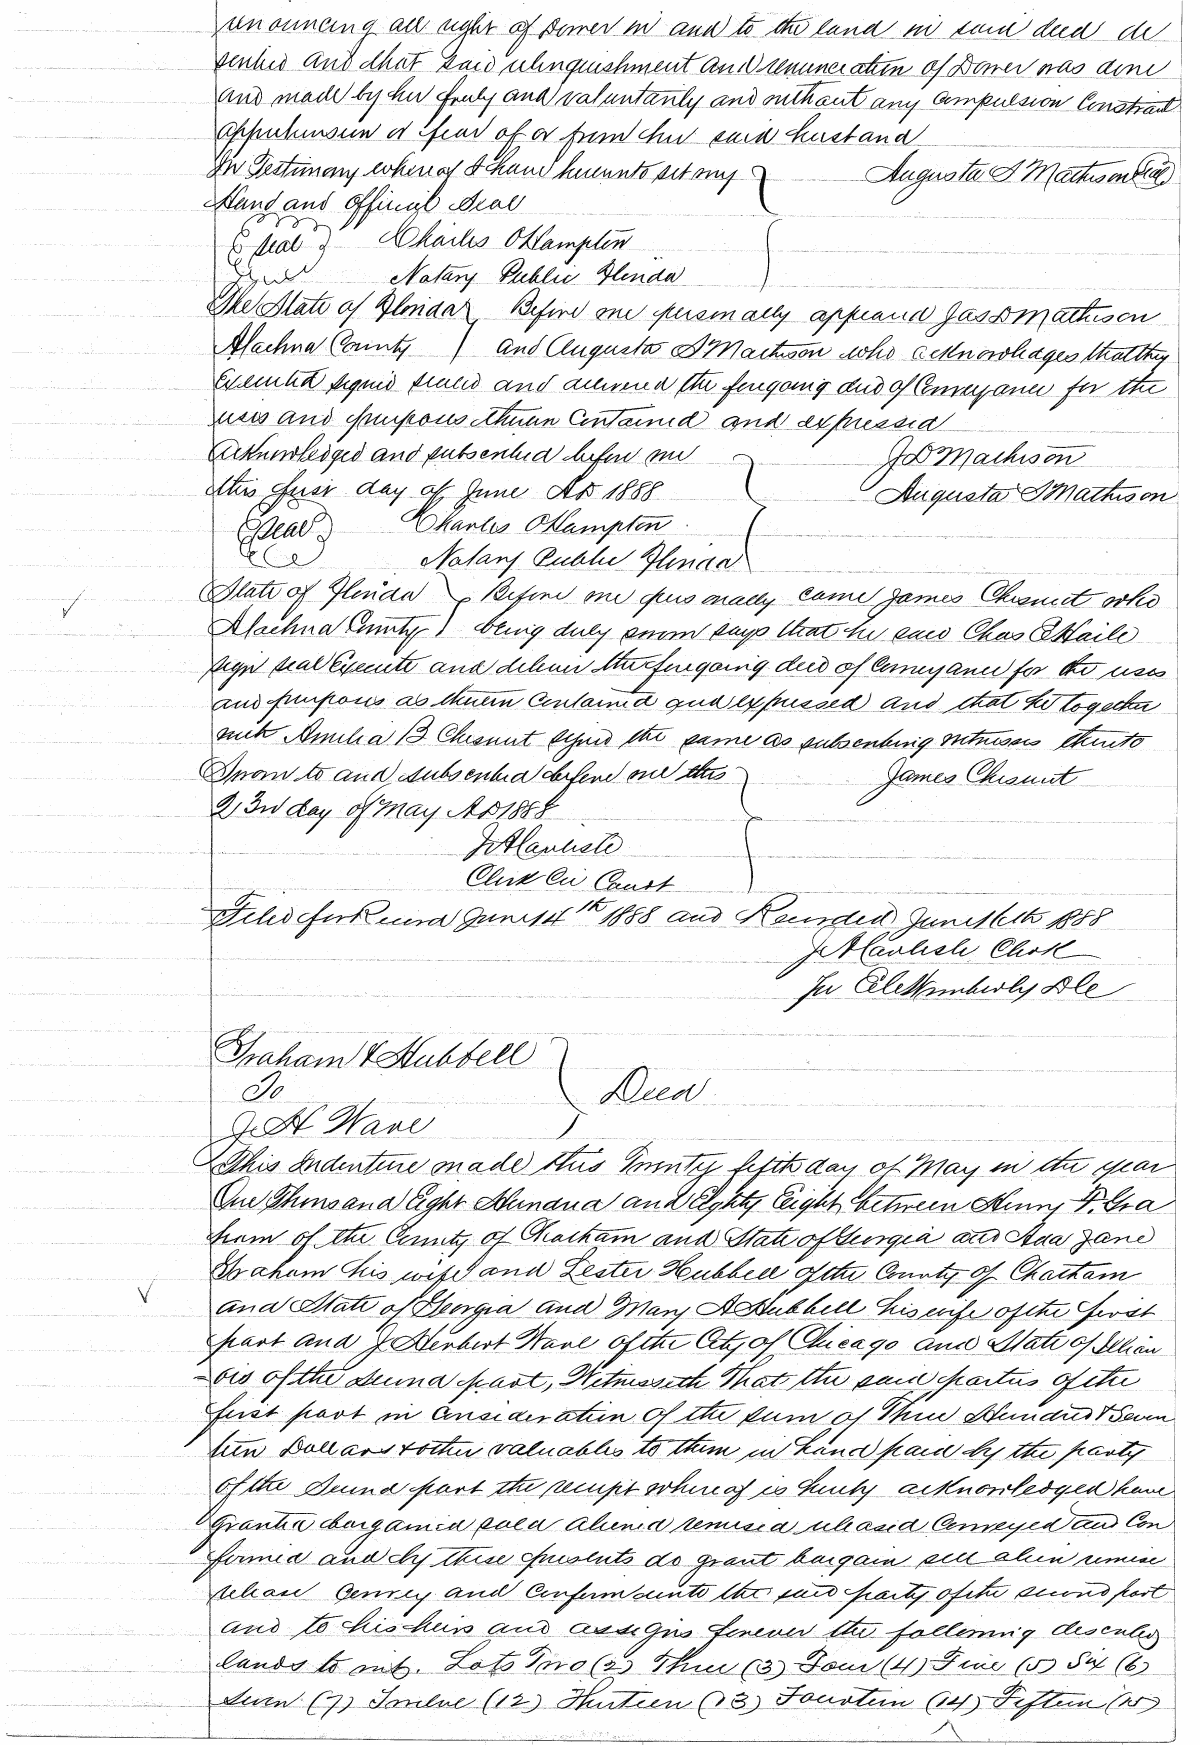 renouncing all right of Dower in and to the land in said deed de
scribed and that said relinquishment and renunciation of Dower was done
and made by her freely and voluntarily and without any compulsion Constraint
apprehension or fear of or from her said husband
In Testimony whereof I have hereunto set my Augusta S Mathison Seal
Hand and official Seal
Seal Charles O Hampton
Notary Public Florida
The State of Florida Before me personally appeared Jas D Mathison
Alachua County and Augusta S Mathison who acknowledges that they
Executed signed sealed and delivered the foregoing deed of Conveyance for the
uses and purposes therein Contained and expressed
Acknowledged and subscribed before me J D Mathison
this first day of June AD 1888 Augusta S Mathison
Seal Charles O Hampton
Notary Public Florida
State of Florida Before me personally came James Chesnut who
Alachua County being duly sworn says that he said Chas E Haile
sign seal Execute and deliver the foregoing deed of Conveyance for the uses
and purposes as therein Contained and expressed and that he together
with Amelia B Chesnut signed the same as subscribing witnesses thereto
Sworn to and subscribed before me this James Chesnut
23rd day of May AD 1888
J A Carlisle
Clerk Cir Court
Filed for Record June 14th 1888 and Recorded June 16th 1888
J A Carlisle Clerk
Wimberly DC
Graham & Hubbell
To Deed
J. H Wave
This Indenture made this Twenty fifth day of May in the year
One Thousand Eight Hundred and Eighty Eight between Henry F. Gra
ham of the County of Chatham and State of Georgia and Ada Jane
Graham his wife and Lester Hubbell of the County of Chatham
and State of Georgia and Mary A Hubbell his wife of the first
part and J Herbert Wave of the City of Chicago and State of Illian
ois of the Second part, Witnesseth That the said parties of the
first part in Consideration of the sum of Three Hundred & Seven
teen Dollars & other valuables to them in hand paid by the party
of the Second part the receipt whereof is hereby acknowledged have
Granted bargained sold aliened remised released Conveyed and Con
firmed and by these presents do grant bargain sell alien remise
release Convey and Confirm unto the said party of the second part
and to his heirs and assigns forever the following described
lands to wit. Lots Two (2) Three (3) Four (4) Five (5) Six (6)
Seven (7) Twelve (12) Thirteen (13) Fourteen (14) Fifteen (15)